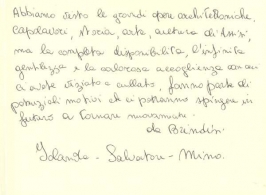 Abbiamo visto le grandi opere architettoniche,
capolavori, storia, arte, cultura di Assisi,
ma la completa disponibilità, l'infinita
gentilezza e la calorosa accoglienza con cui
ci avete viziato e cullato, fanno parte di
potenziali motivi che ci potranno spingere in
futuro a tornare nuovamente.
da Brindisi
Iolanda - Salvatore - Mino.